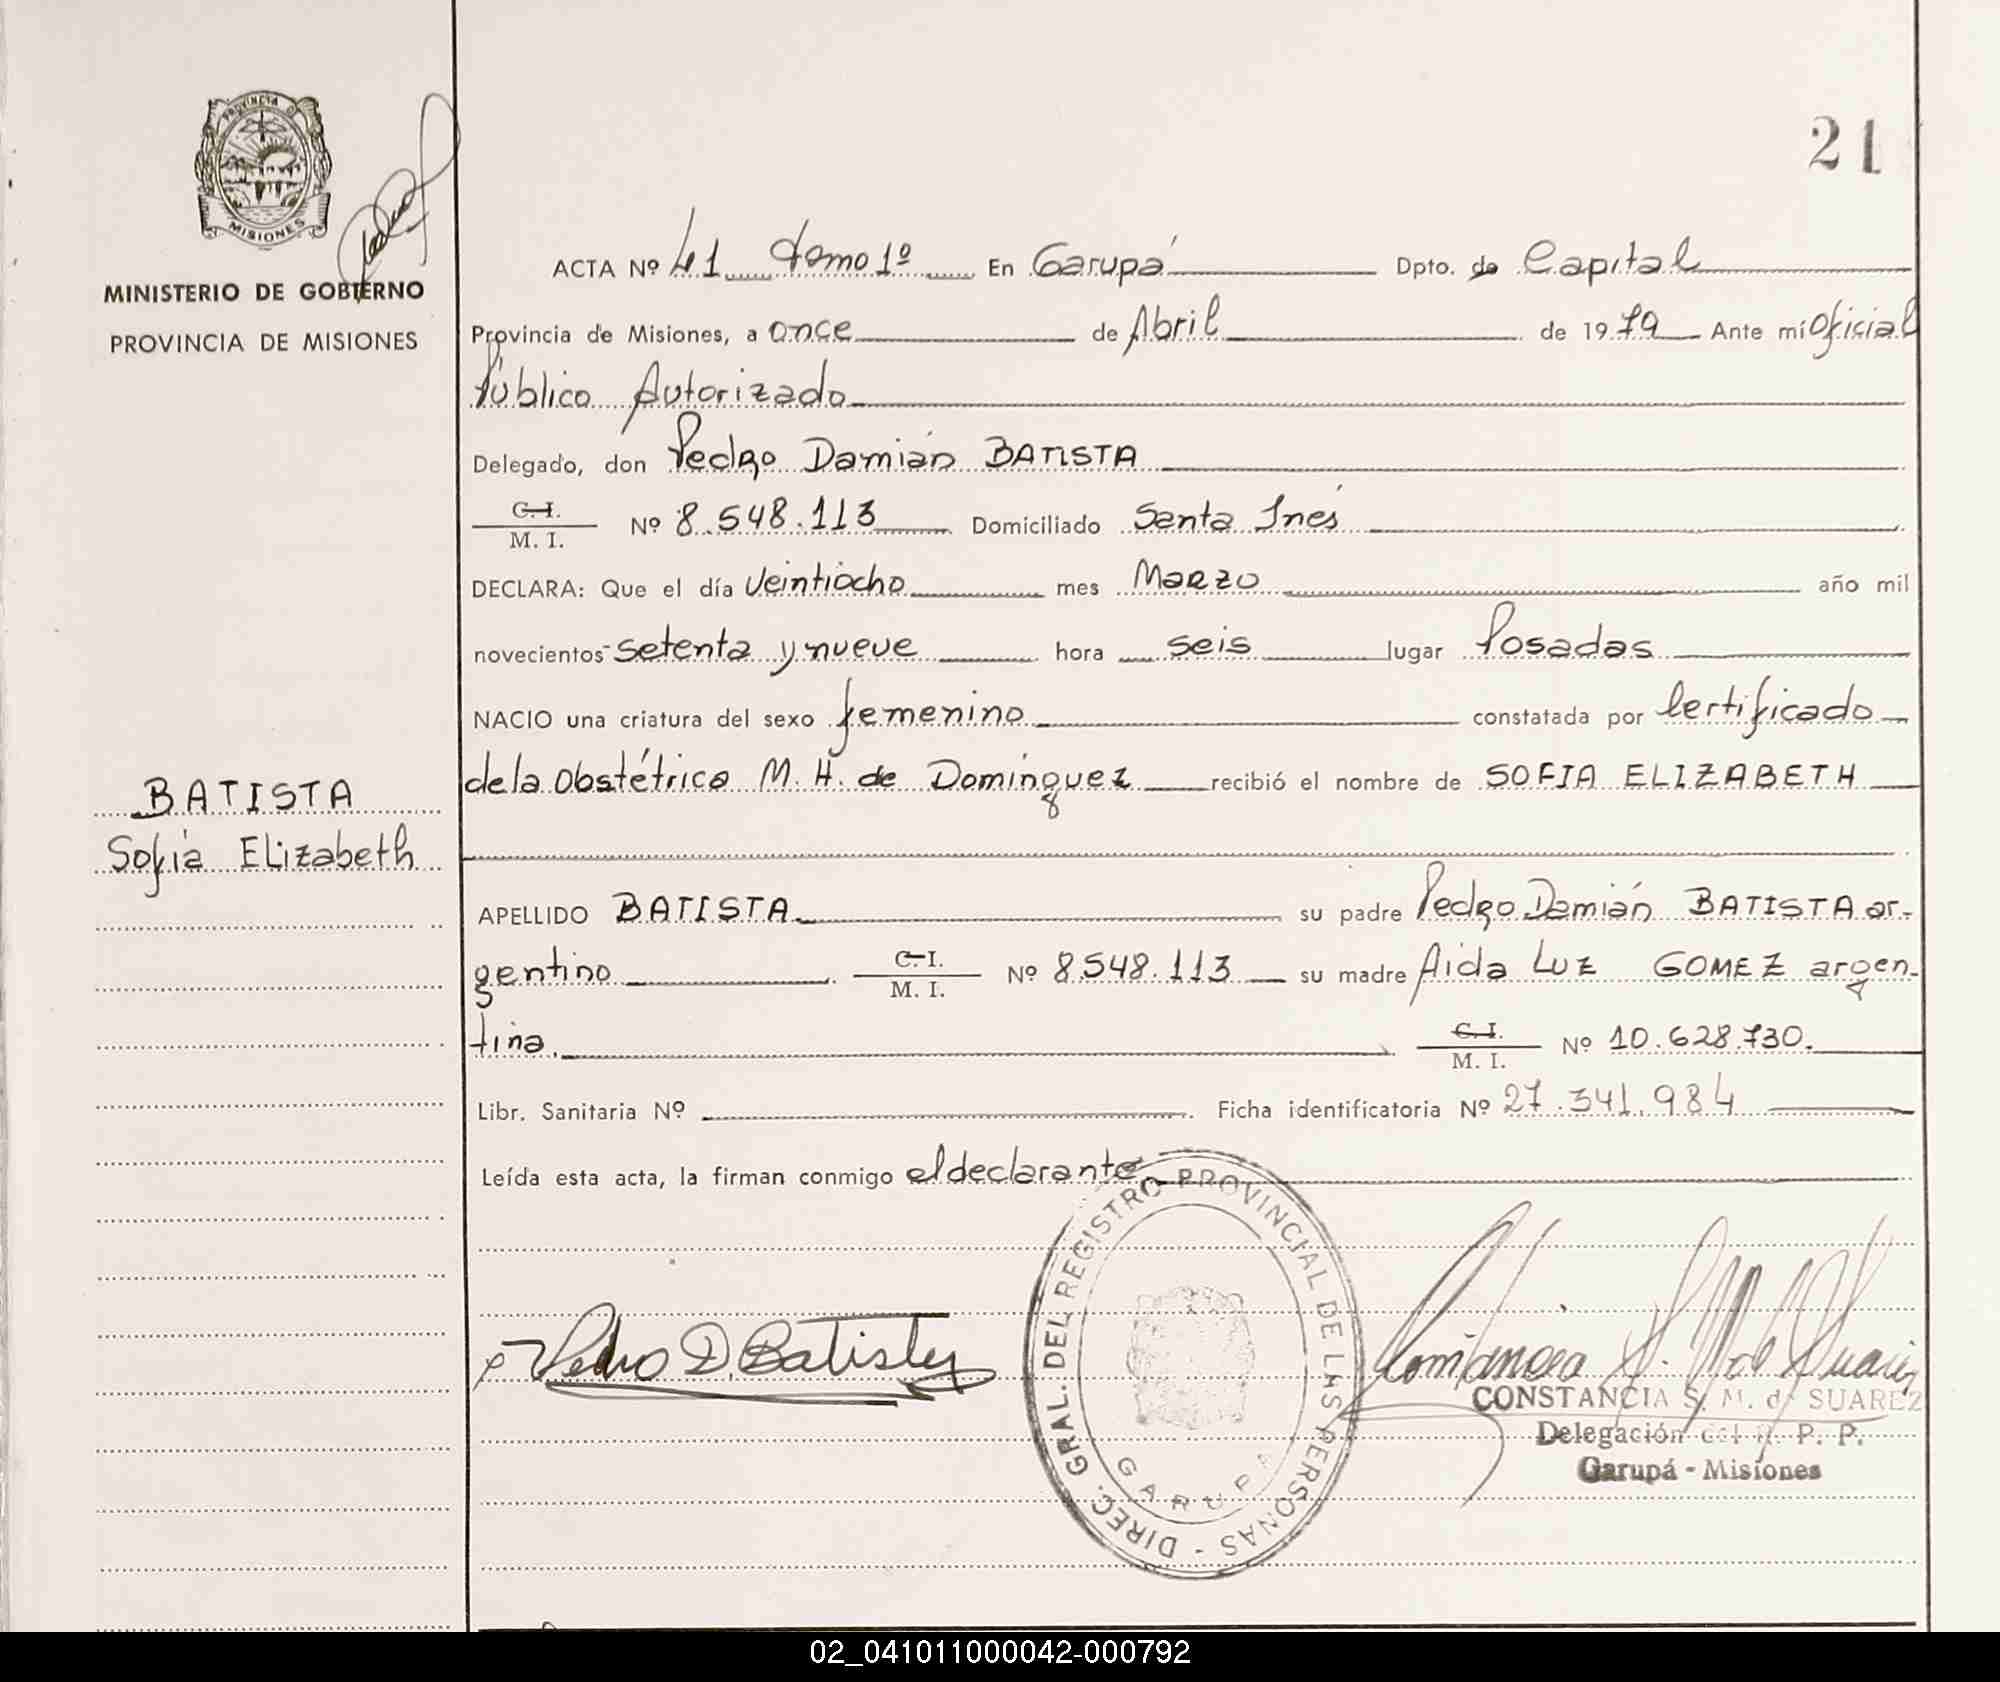 PROVINCIA DE
MISIONES
MINISTERIO DE GOBIERNO
PROVINCIA DE MISIONES
21
ACTA Nº 41 tomo 1º En Garupá Dpto. de Capital
Provincia de Misiones, a once de Abril de 1979 Ante mí Oficial
Público Autorizado
Delegado, don Pedro Damián BATISTA
C. I.
M. I. Nº 8.548.113 Domiciliado Santa Inés
DECLARA: Que el día Veintiocho mes Marzo año mil
novecientos setenta y nueve hora seis lugar Posadas
NACIO una criatura del sexo femenino constatada por Certificado
de la Obstétrica M. H. de Domínguez recibió el nombre de SOFIA ELIZABETH
BATISTA
Sofia Elizabeth
APELLIDO BATISTA su padre Pedro Damián BATISTA ar-
gentino C. I.
M. I. Nº 8.548.113 su madre Aida Luz GOMEZ argen-
tina. C. I.
M. I. Nº 10.628.730.
Libr. Sanitaria Nº Ficha identificatoria Nº 27.341.984
Leída esta acta, la firman conmigo el declarante
DIREC. GRAL. DEL REGISTRO PROVINCIAL DE LAS PERSONAS -
GARUPA
Pedro D. Batista
Constancia S. M. de Suarez
CONSTANCIA S. M. de SUAREZ
Delegación del R. P. P.
Garupá - Misiones
02_041011000042-000792